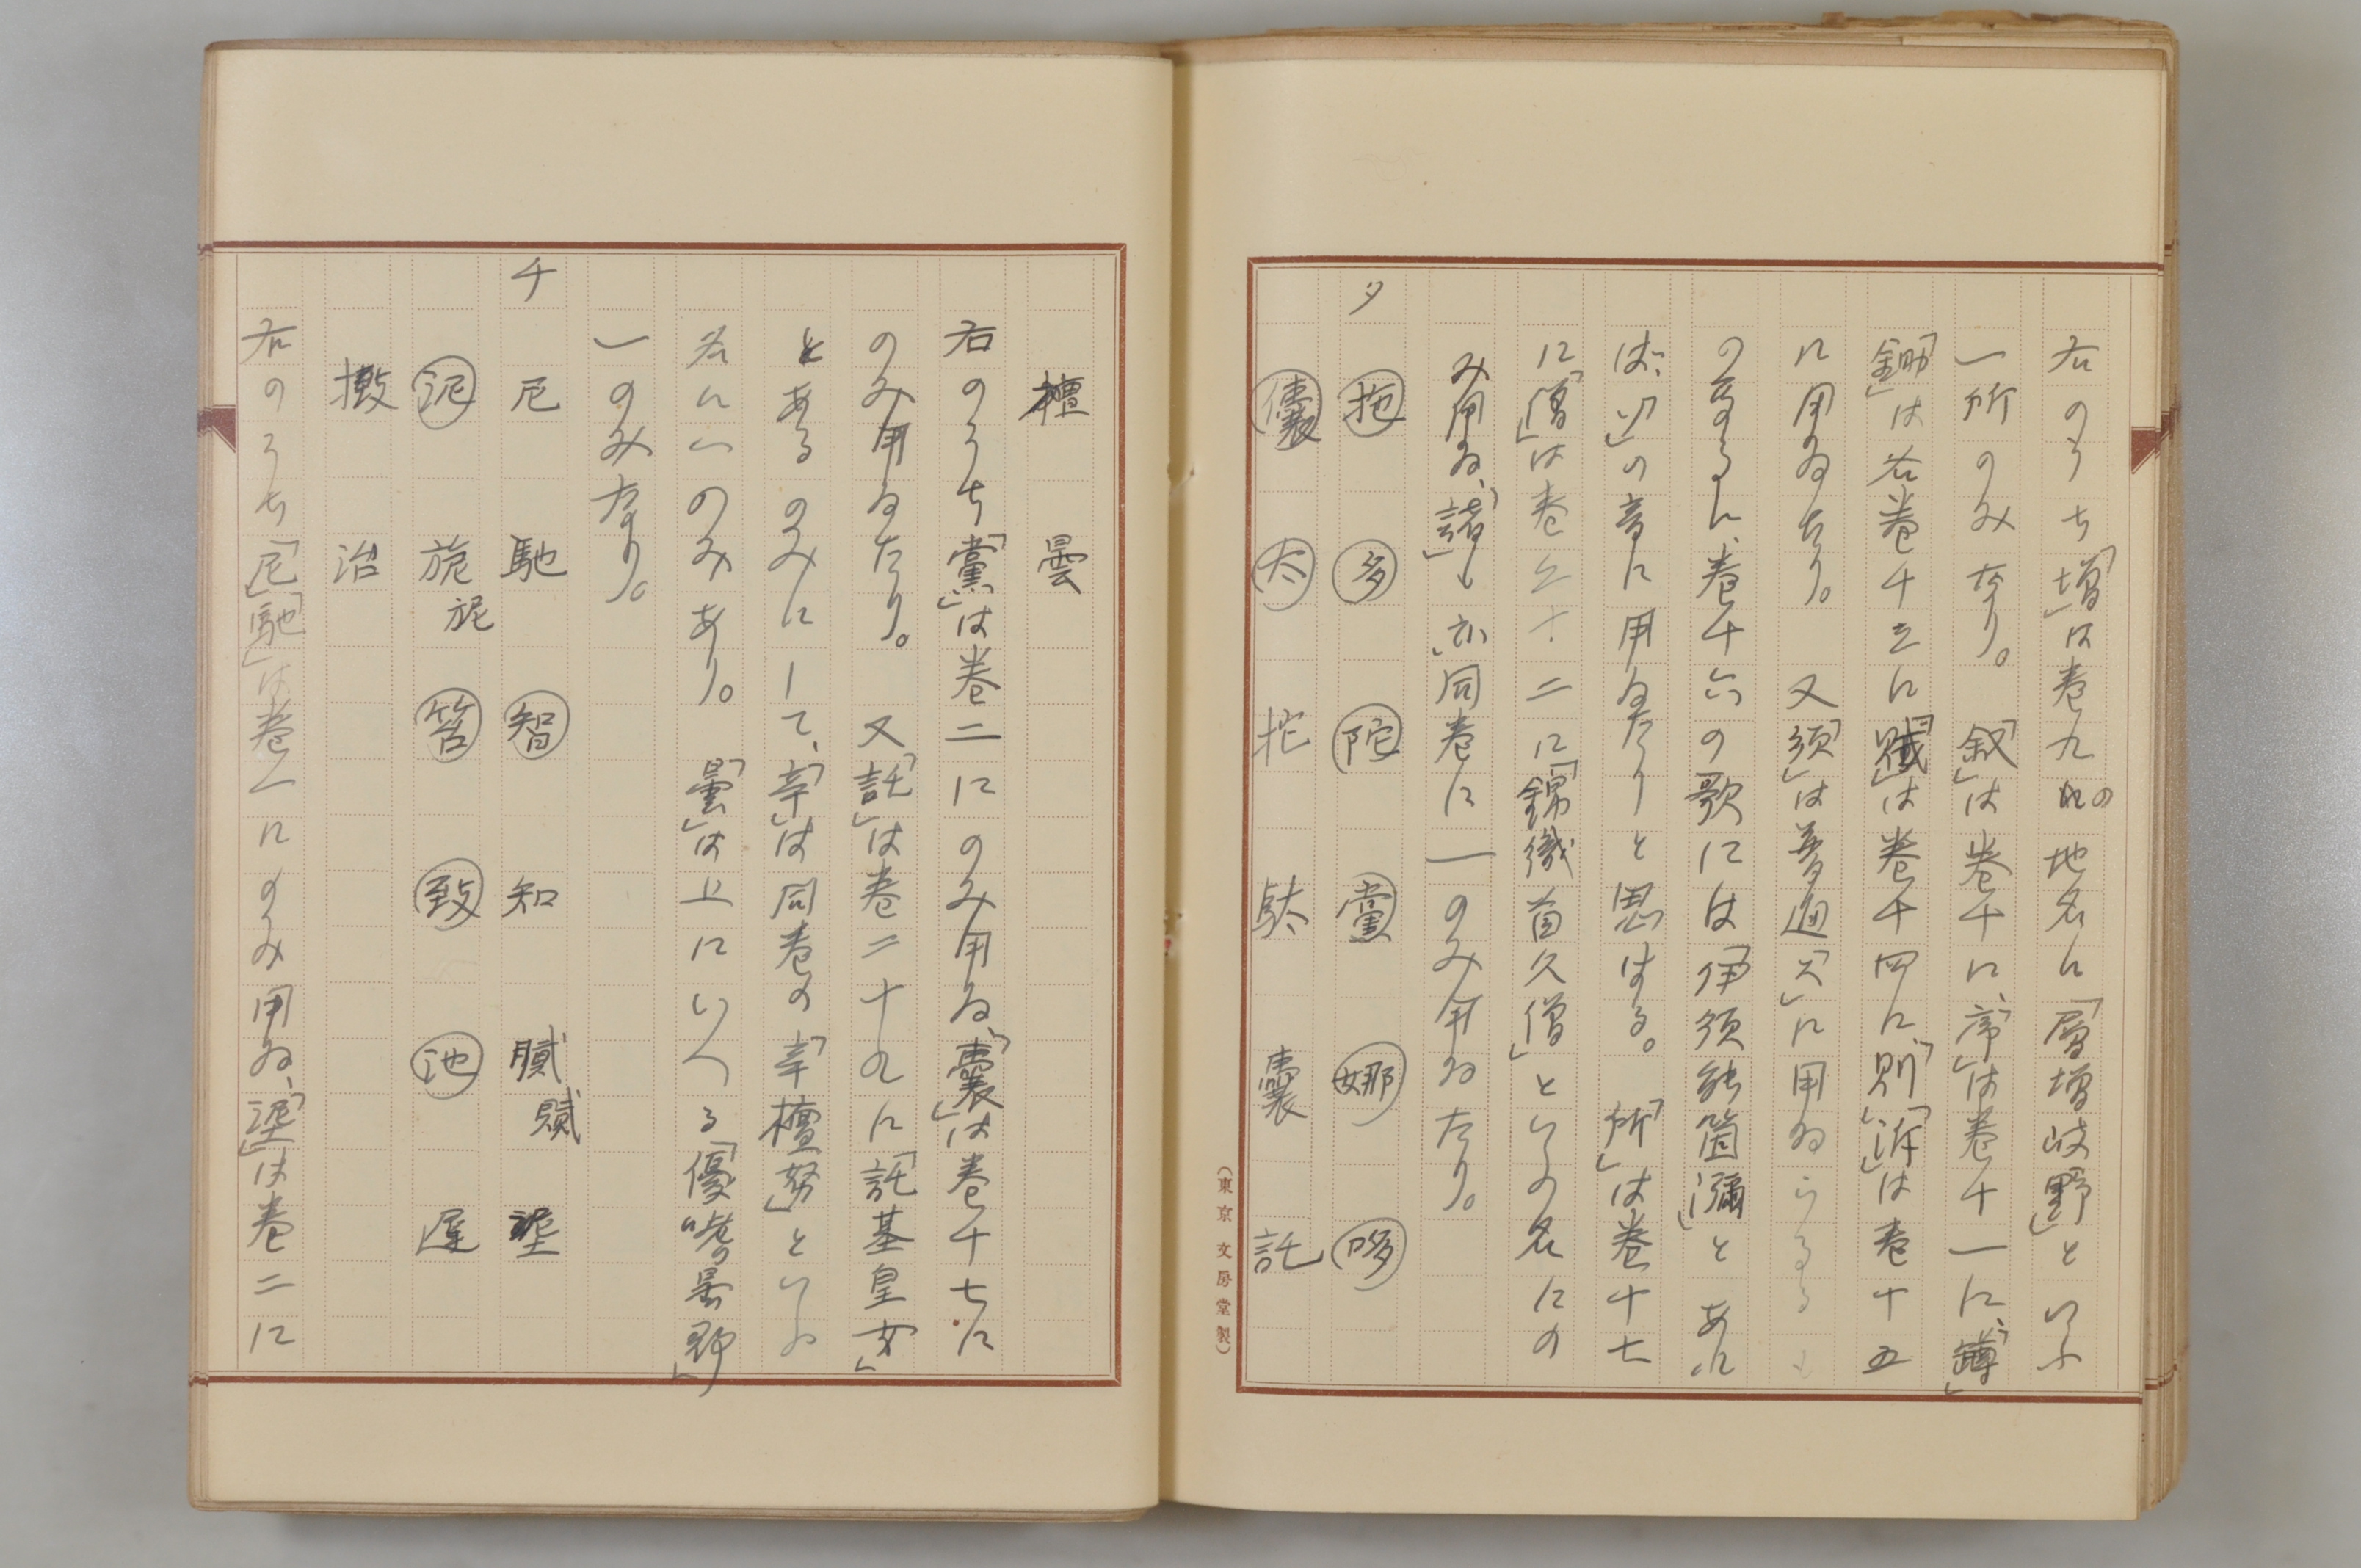 右のうち「増」は巻九の地名に「層増岐野」といふ
一所のみなり。「叙」は巻十に、「序」は巻十一に、「蹲」
「鋤」は右巻十三に「賊」は巻十四に「則」「泝」は巻十五
に用ゐたり。又「須」は普通「ス」に用ゐらるるも
のなるに、巻十六の歌には「伊須能箇瀰」とあれ
ば「ソ」の音に用ゐたりと思はる。「所」は巻十七
に「僧」は巻二十二に「錦織首久僧」といふ名にの
み用ゐ、「諸」も亦同巻に一のみ用ゐたり。
タ 拖 多 陀 黨 娜 哆
儾 太 拕 駄 囊 託
(東京 文房堂製)
檀 曇
右のうち「黨」は巻二にのみ用ゐ、「囊」は巻十七に
のみ用ゐたり。又「託」は巻二十九に「託基皇女」
とあるのみにして、「幸」は同巻の「幸檀努」といふ
名に一のみあり。「曇」は上にいへる「優嗜曇野」
一のみなり。
チ 尼 馳 智 知 膩 貳 埿
泥 旎 笞 致 池 遲
撤 治
右のうち「尼」「馳」は巻一にのみ用ゐ、「埿」は巻二に